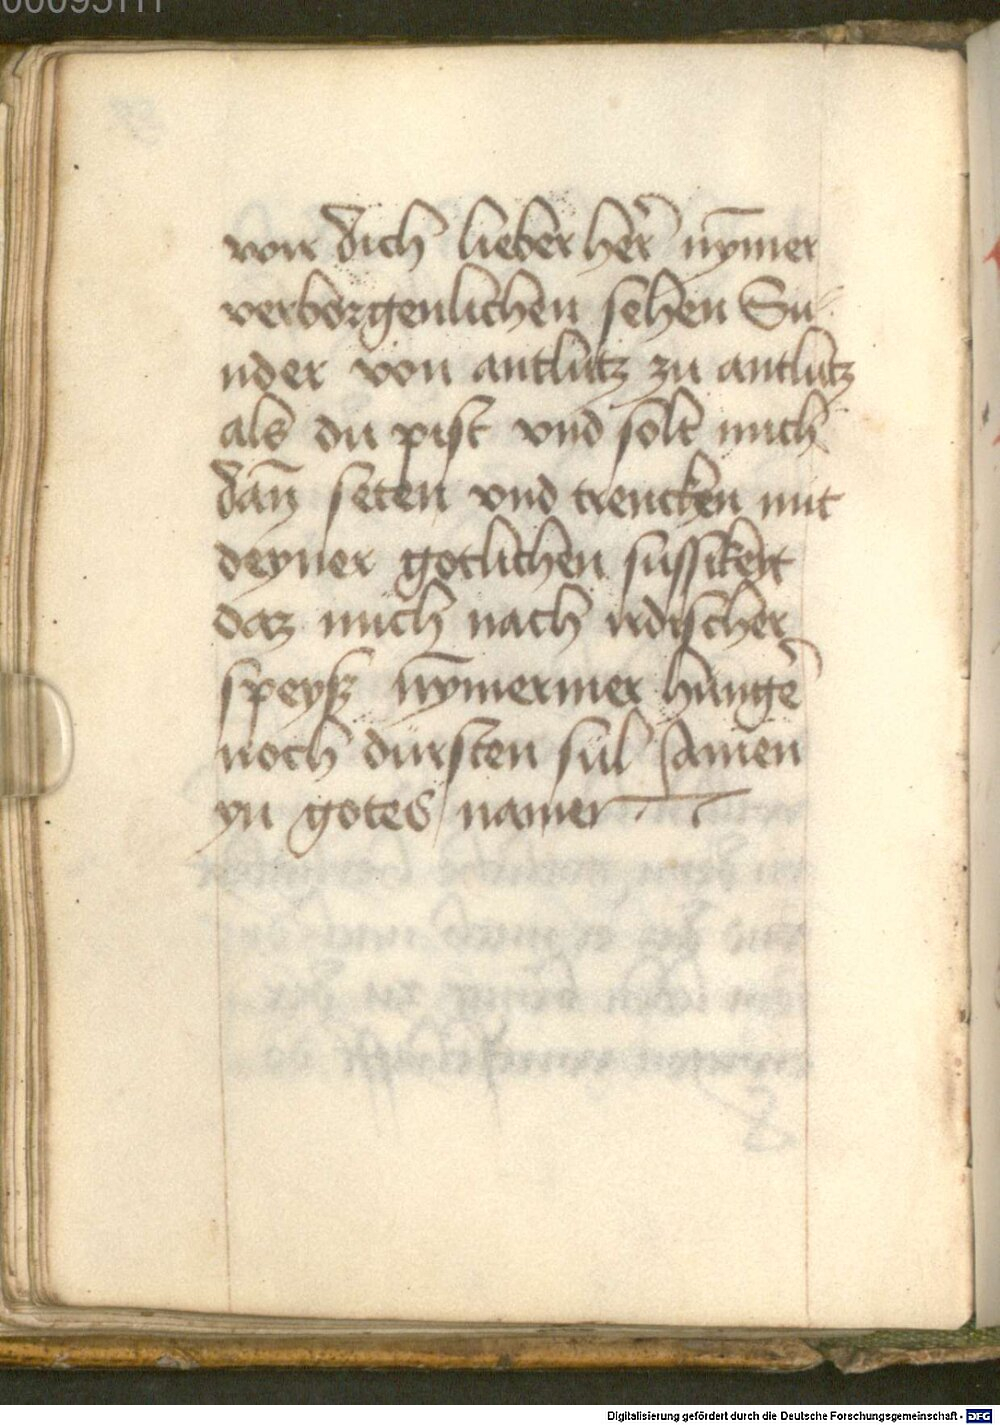 wir dich lieber her̄ nȳmer
verborgenlichen sehen Su-
nder von antlutz zu antlutz
als du pist vnd solt mich
dan̄ seten vnd trencken mit
deyner gotlichen sussikeyt
daz mich nach irdischer
speyß nȳmermer hunge᷑
noch dursten sul Amen
yn gotes namen
Digitalisierung gefördert durch die Deutsche Forschungsgemeinschaft - DFG